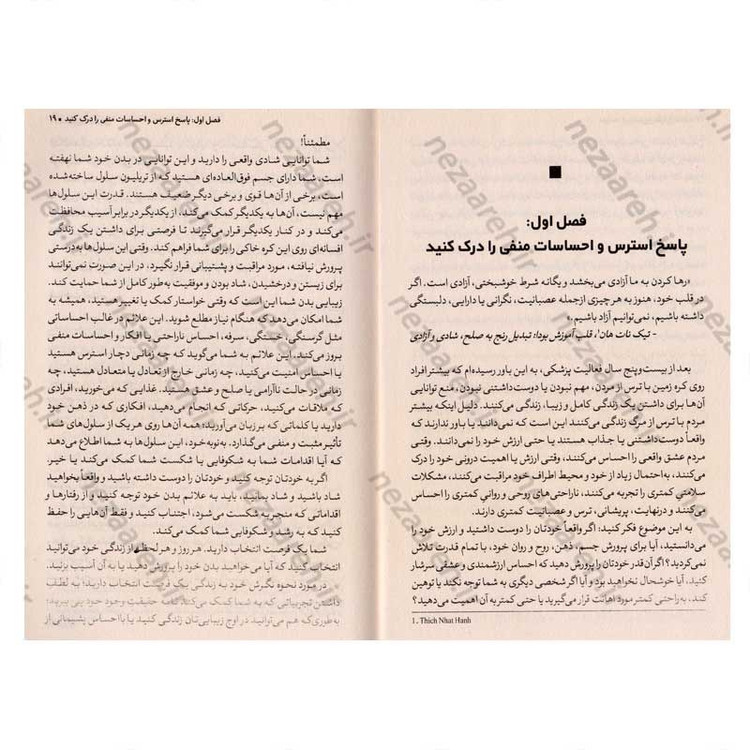 فصل اول:
پاسخ استرس و احساسات منفی را درک کنید
«رها کردن به ما آزادی می‌بخشد و یگانه شرط خوشبختی، آزادی است. اگر
در قلب خود، هنوز به هر چیزی ازجمله عصبانیت، نگرانی یا دارایی، دلبستگی
داشته باشیم، نمی‌توانیم آزاد باشیم.»
- تیک نات هان¹، قلب آموزش بودا: تبدیل رنج به صلح، شادی و آزادی
بعد از بیست‌وپنج سال فعالیت پزشکی، به این باور رسیده‌ام که بیشتر افراد
روی کره زمین با ترس از مردن، مهم نبودن یا دوست‌داشتنی نبودن، منع توانایی
آن‌ها برای داشتن یک زندگی کامل و زیبا، زندگی می‌کنند. دلیل اینکه بیشتر
مردم با ترس از مرگ زندگی می‌کنند این است که نمی‌دانند یا باور ندارند که
واقعاً دوست‌داشتنی یا جذاب هستند یا حتی ارزش خود را نمی‌دانند. وقتی
مردم عشق واقعی را احساس می‌کنند، وقتی ارزش یا اهمیت درونی خود را درک
می‌کنند، به‌احتمال زیاد از خود و محیط اطراف خود مراقبت می‌کنند، مشکلات
سلامتی کمتری را تجربه می‌کنند، ناراحتی‌های روحی و روانی کمتری را احساس
می‌کنند و درنهایت، پریشانی، ترس و عصبانیت کمتری دارند.
به این موضوع فکر کنید: اگر واقعاً خودتان را دوست داشتید و ارزش خود را
می‌دانستید، آیا برای پرورش جسم، ذهن، روح و روان خود، با تمام قدرت تلاش
نمی‌کردید؟ اگر آن‌قدر خودتان را پرورش دهید که احساس ارزشمندی و عشقی سرشار
کنید، آیا خوشحال نخواهید بود و آیا اگر شخصی دیگری به شما توجه نکند یا توهین
کند، به‌راحتی کمتر مورد اهانت قرار می‌گیرید یا حتی کمتر به آن اهمیت می‌دهید؟
1. Thich Nhat Hanh
فصل اول: پاسخ استرس و احساسات منفی را درک کنید ■ ۱۹
مطمئناً!
شما توانایی شادی واقعی را دارید و این توانایی در بدن خود شما نهفته
است، شما دارای جسم فوق‌العاده‌ای هستید که از تریلیون سلول ساخته شده
است، برخی از آن‌ها قوی و برخی دیگر ضعیف هستند. قدرت این سلول‌ها
مهم نیست، آن‌ها به یکدیگر کمک می‌کند، از یکدیگر در برابر آسیب محافظت
می‌کند و در کنار یکدیگر قرار می‌گیرند تا فرصتی برای داشتن یک زندگی
افسانه‌ای روی این کره خاکی را برای شما فراهم کند. وقتی این سلول‌ها به‌درستی
پرورش نیافته، مورد مراقبت و پشتیبانی قرار نگیرد، در این صورت نمی‌توانند
برای زیستن و درخشیدن، شاد بودن و موفقیت به‌طور کامل از شما حمایت کند.
زیبایی بدن شما این است که وقتی خواستار کمک یا تغییر هستید، همیشه به
شما امکان می‌دهد که هنگام نیاز مطلع شوید. این علائم در غالب احساساتی
مثل گرسنگی، خستگی، سرفه، احساس ناراحتی یا افکار و احساسات منفی
بروز می‌کند. این علائم به شما می‌گوید که چه زمانی دچار استرس هستید
یا احساس امنیت می‌کنید، چه زمانی خارج از تعادل یا متعادل هستید، چه
زمانی در حالت ناآرامی یا صلح و عشق هستید. غذایی که می‌خورید، افرادی
که ملاقات می‌کنید، حرکاتی که انجام می‌دهید، افکاری که در ذهن خود
دارید یا کلماتی که بر زبان می‌آورید؛ همه آن‌ها روی هر یک از سلول‌های شما
تأثیر مثبت و منفی می‌گذارد. به‌نوبه‌خود، این سلول‌ها به شما اطلاع می‌دهد
که آیا اقدامات شما به شکوفایی یا شکست شما کمک می‌کند یا خیر.
اگر به خودتان توجه کنید و خودتان را دوست داشته باشید و واقعاً بخواهید
شاد باشید و شاد بمانید، باید به علائم بدن خود توجه کنید و از رفتارها و
اقداماتی که منجر به شکست می‌شود، اجتناب کنید و فقط آن‌هایی را حفظ
کنید که به رشد و شکوفایی شما کمک می‌کند.
شما یک فرصت انتخاب دارید. هر روز و هر لحظه از زندگی خود می‌توانید
انتخاب کنید که آیا می‌خواهید بدن خود را پرورش دهید یا به آن آسیب بزنید.
در مورد نحوه نگرش خود به زندگی یک فرصت انتخاب دارید؛ به لطف
داشتن تجربیاتی که به شما کمک می‌کند که به حقیقت وجود خود پی ببرید؛
به‌طوری‌که هم می‌توانید در اوج زیبایی‌تان زندگی کنید یا با احساس پشیمانی از
nezaareh.ir